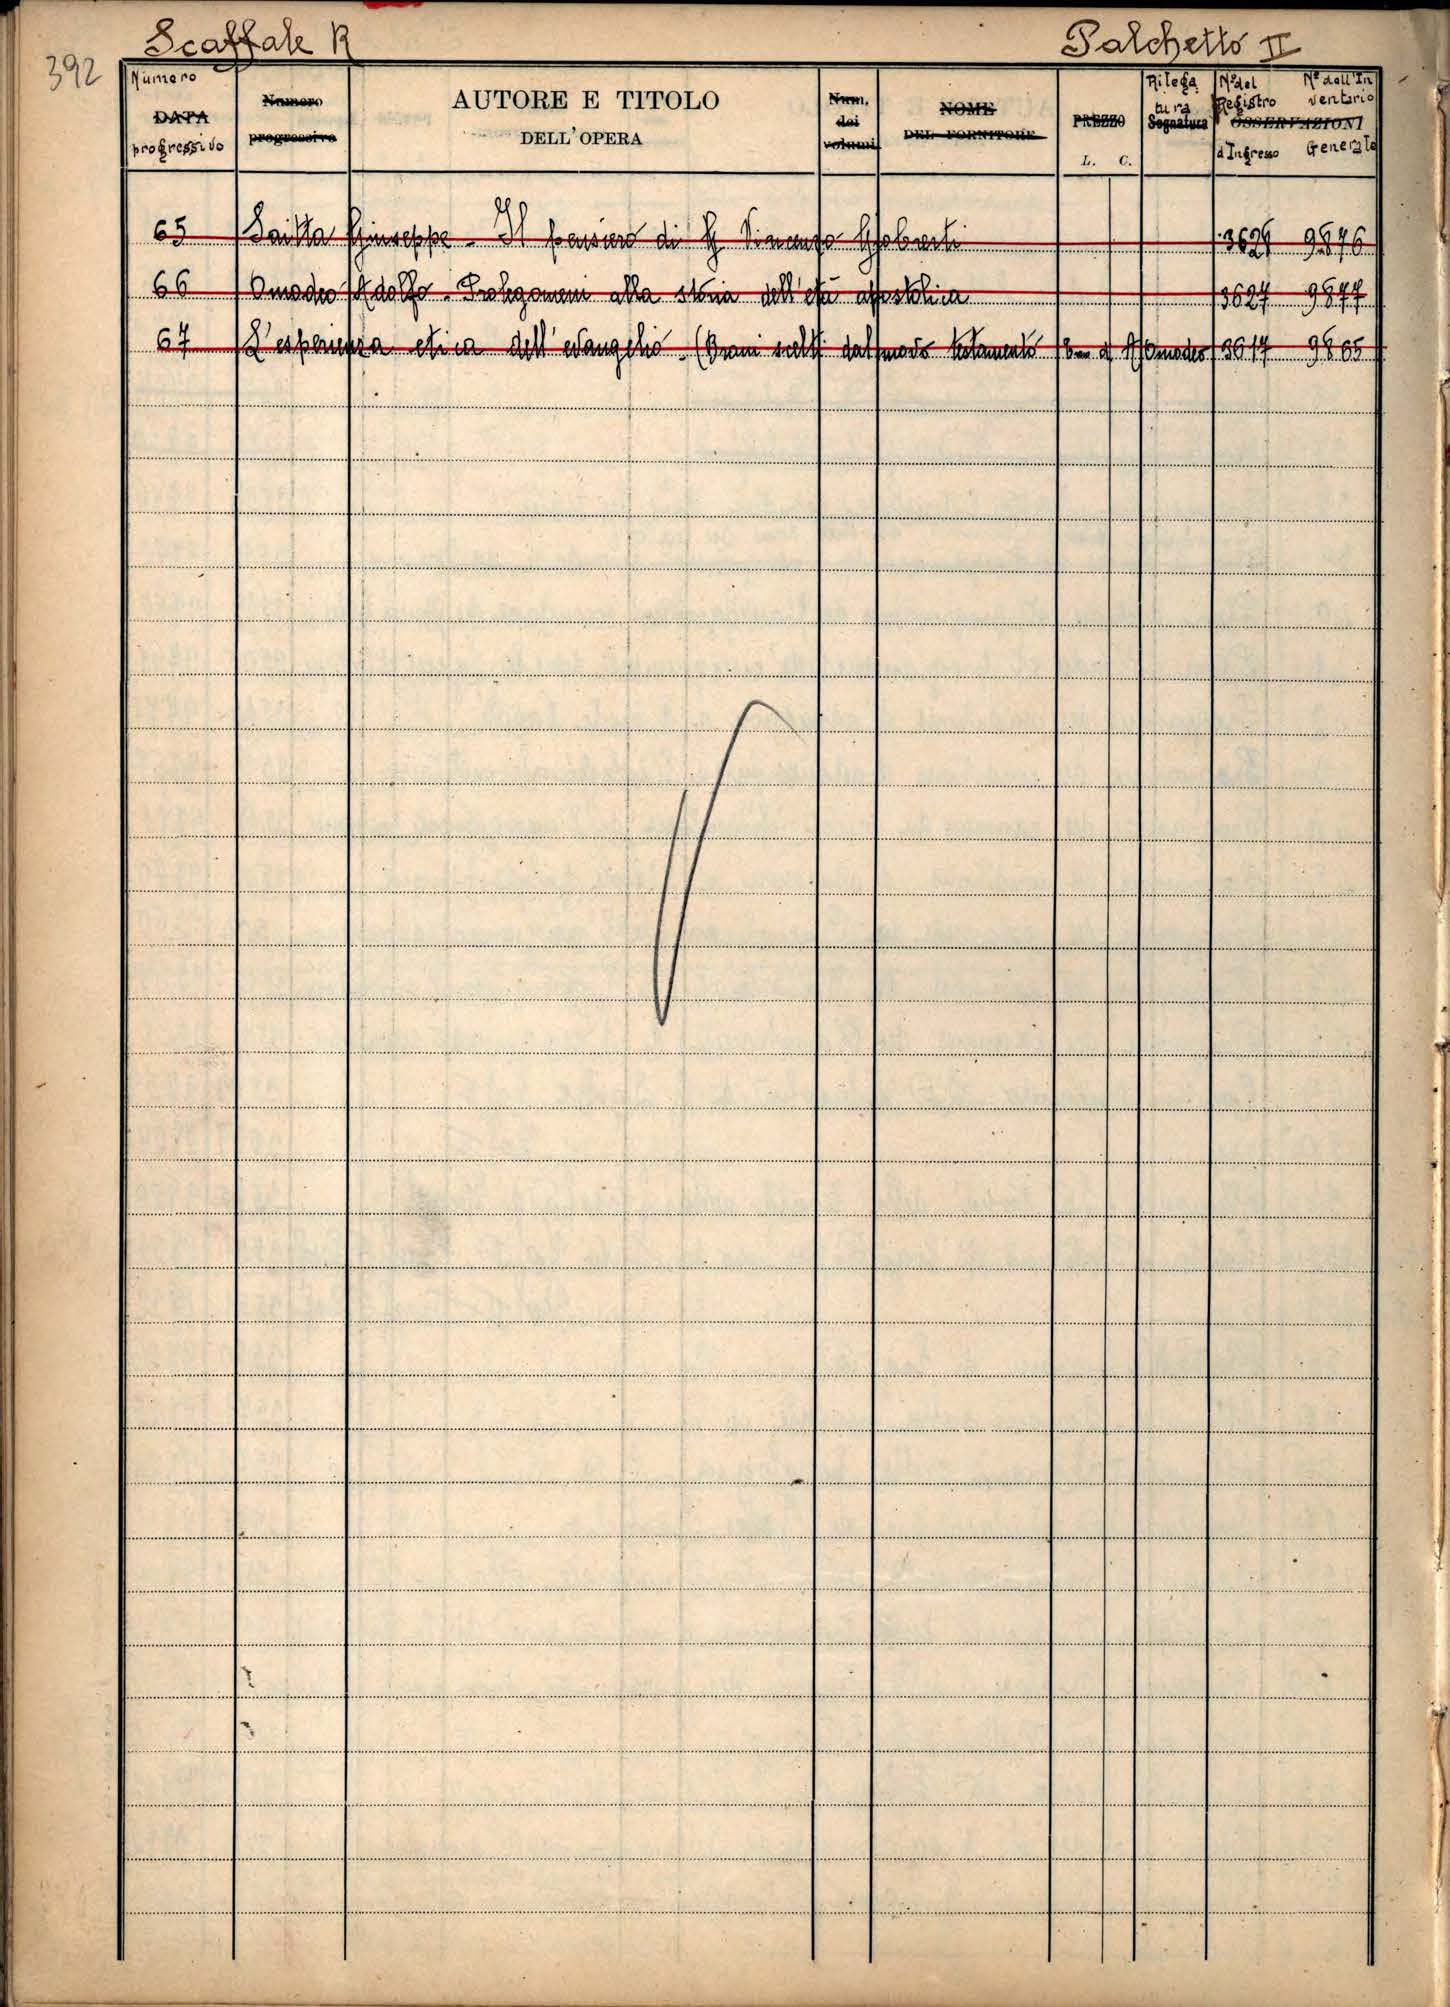 Scaffale R Palchetto II
392
Numero DATA progressivo
Numero progressivo
AUTORE E TITOLO
DELL'OPERA
Num. dei volumi
NOME
DEL FORNITORE
PREZZO
L. C.
Rilegatura Segnatura
N° del Registro d'Ingresso
N° dell'Inventario Generale
OSSERVAZIONI
65 Saitta Giuseppe - Il pensiero di Vincenzo Gioberti 9876
66 Omodeo Adolfo - Prolegomeni alla storia dell'età apostolica 3627 9877
67 L'esperienza etica dell'evangelio - (Brani scelti dal nuovo testamento di A Omodeo 3617 9865